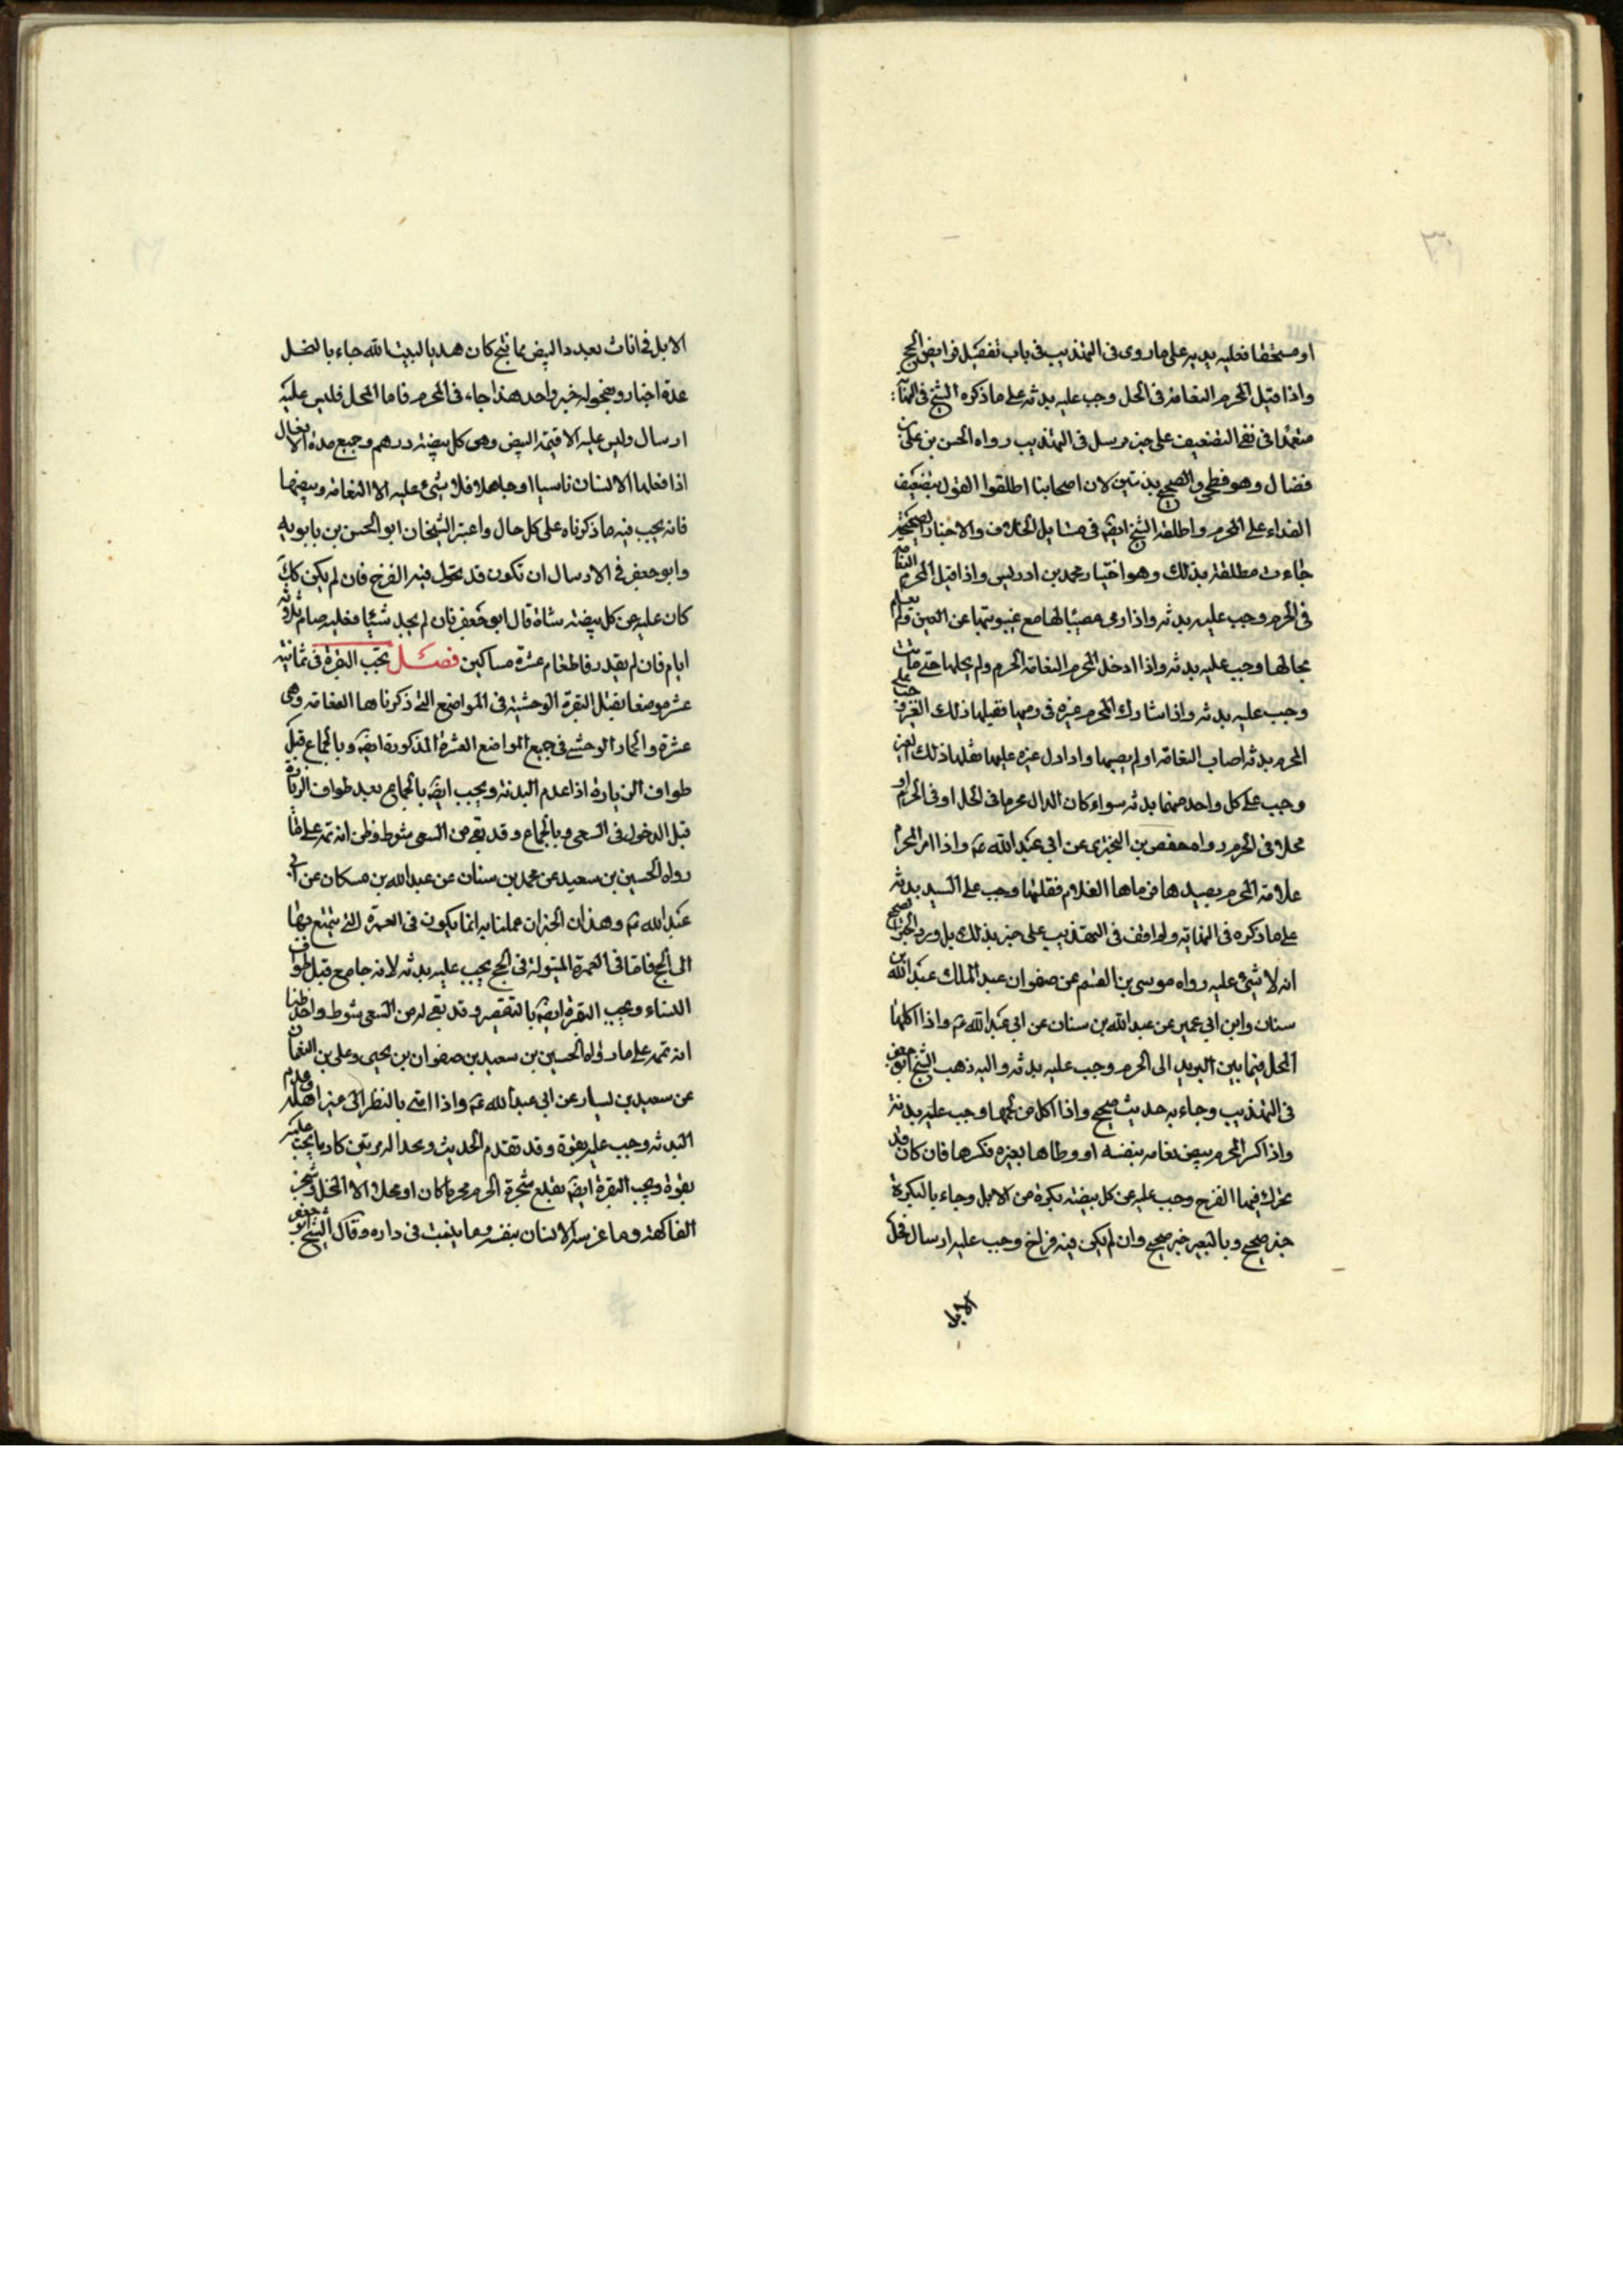 او مستخفا فعليه بدنة على ما روى فى التهذيب فى باب تفصيل فرايض الحج
واذا قتل المحرم النعامة فى الحل وجب عليه بدنة على ما ذكره الشيخ فى النهاية
معتمدا فى نفى التضعيف على خبر مرسل فى التهذيب رواه الحسن بن على بن
فضال وهو فطحى والصحيح بدنتين لان اصحابنا اطلقوا القول بتضعيف
الفداء على المحرم واطلقه الشيخ ايضا فى مسايل الخلاف والاخبار الصحيحة
جاءت مطلقة بذلك وهو اختيار محمد بن ادريس واذا قتل المحرم النعامة
فى الحرم وجب عليه بدنة واذا رمى مصيبا لها مع غيبوبتها عن العين ولم يعلم
بحالها وجب عليه بدنة واذا ادخل المحرم النعامة الحرم ولم يخلها حتى ماتت
وجب عليه بدنة واذا شارك المحرم غيره فى رميها فقتلها ذلك الغير وجب على
المحرم بدنة اصاب النعامة او لم يصبها واذا دل غيره عليها فقتلها ذلك الغير
وجب على كل واحد منهما بدنة سواء كان الدال محرما فى الحل او فى الحرم او
محلا فى الحرم رواه حفص بن البخترى عن ابى عبد الله ع واذا امر المحرم
غلامه المحرم بصيدها فرماها الغلام فقتلها وجب على السيد بدنة
على ما ذكره فى النهاية ولم اقف فى التهذيب على خبر بذلك بل ورد الخبر الصحيح
انه لا شىء عليه رواه موسى بن القسم عن صفوان عبد الملك عبد الله بن
سنان وابن ابى عمير عن عبد الله بن سنان عن ابى عبد الله ع واذا اكلها
المحل فيما بين البريد الى الحرم وجب عليه بدنة واليه ذهب الشيخ ابو جعفر
فى التهذيب وجاء به حديث صحيح واذا اكل من لحمها وجب عليه بدنة
واذا كسر المحرم بيض نعامة بنفسه او وطاها بعيره فكسرها فان كان قد
تحرك فيها الفرخ وجب عليه عن كل بيضة بكرة من الابل وجاء بالبكرة
خبر صحيح وبالبعير خبر صحيح وان لم يكن فيه فراخ وجب عليه ارسال فحل
الابل
الابل فى اناث بعدد البيض فما نتج كان هديا لبيت الله جاء بالفصل
عدة اخبار وبفحولة خبر واحد هذا جاء فى المحرم فاما المحل فليس عليه
ارسال وليس عليه الا قيمة البيض وهى كل بيضة درهم وجميع هذه الافعال
اذا فعلها الانسان ناسيا او جاهلا فلا شىء عليه الا النعامة وبيضها
فانه يجب فيه ما ذكرناه على كل حال واعتبر الشيخان ابو الحسن بن بابويه
وابو جعفر فى الارسال ان تكون قد تحول فيه الفرخ فان لم يكن كك
كان عليه عن كل بيضة شاة قال ابو جعفر فان لم يجد شيئا فعليه صيام ثلاثة
ايام فان لم يقدر فاطعام عشرة مساكين فصل تجب البقرة فى ثمانية
عشر موضعا بقتل البقرة الوحشية فى المواضع التى ذكرناها النعامة وهى
عشرة والحمار الوحشى فى جميع المواضع العشرة المذكورة ايضا وبالجماع قبل
طواف الزيارة اذا عدم البدنة ويجب ايضا بالجماع بعد طواف الزيارة
قبل الدخول فى السعى وبالجماع وقد بقى من السعى شوط وظن انه تمه على ما
رواه الحسين بن سعيد عن محمد بن سنان عن عبد الله بن مسكان عن ابى
عبد الله ع وهذان الخبران عملنا بهما انما يكون فى العمرة التى يتمتع بها
الى الحج فاما فى العمرة المبتولة فى الحج يجب عليه بدنة لانه جامع قبل طواف
النساء ويجب البقرة ايضا بالتقصير وقد بقى له من السعى شوط واحد ظنا
انه تمه على ما رواه الحسين بن سعيد بن صفوان بن يحيى وعلى بن النعمان
عن سعيد بن يسار عن ابى عبد الله ع واذا امنى بالنظر الى غير اهله وعدم
البدنة وجب عليه بقرة وقد تقدم الحديث ويجد له مرتين كاذبا يجب عليه
بقرة ويجب البقرة ايضا بقلع شجرة الحرم محرما كان او محلا الا النخل وشجر
الفاكهة وما غرسه الانسان بنفسه وما ينبت فى داره وقال الشيخ ابو جعفر